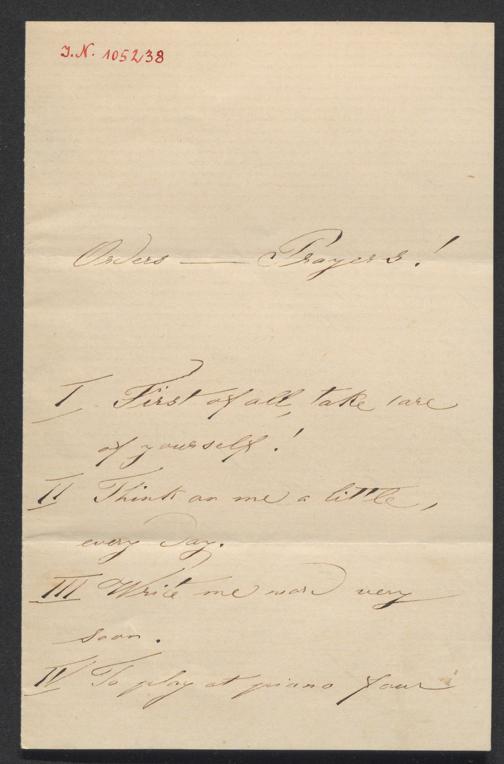 I.N. 105238
Orders — Prayers!
I First of all, take care
of yourself!
II Think on me a little,
every day.
III Write me now very
soon.
IV To play at piano four